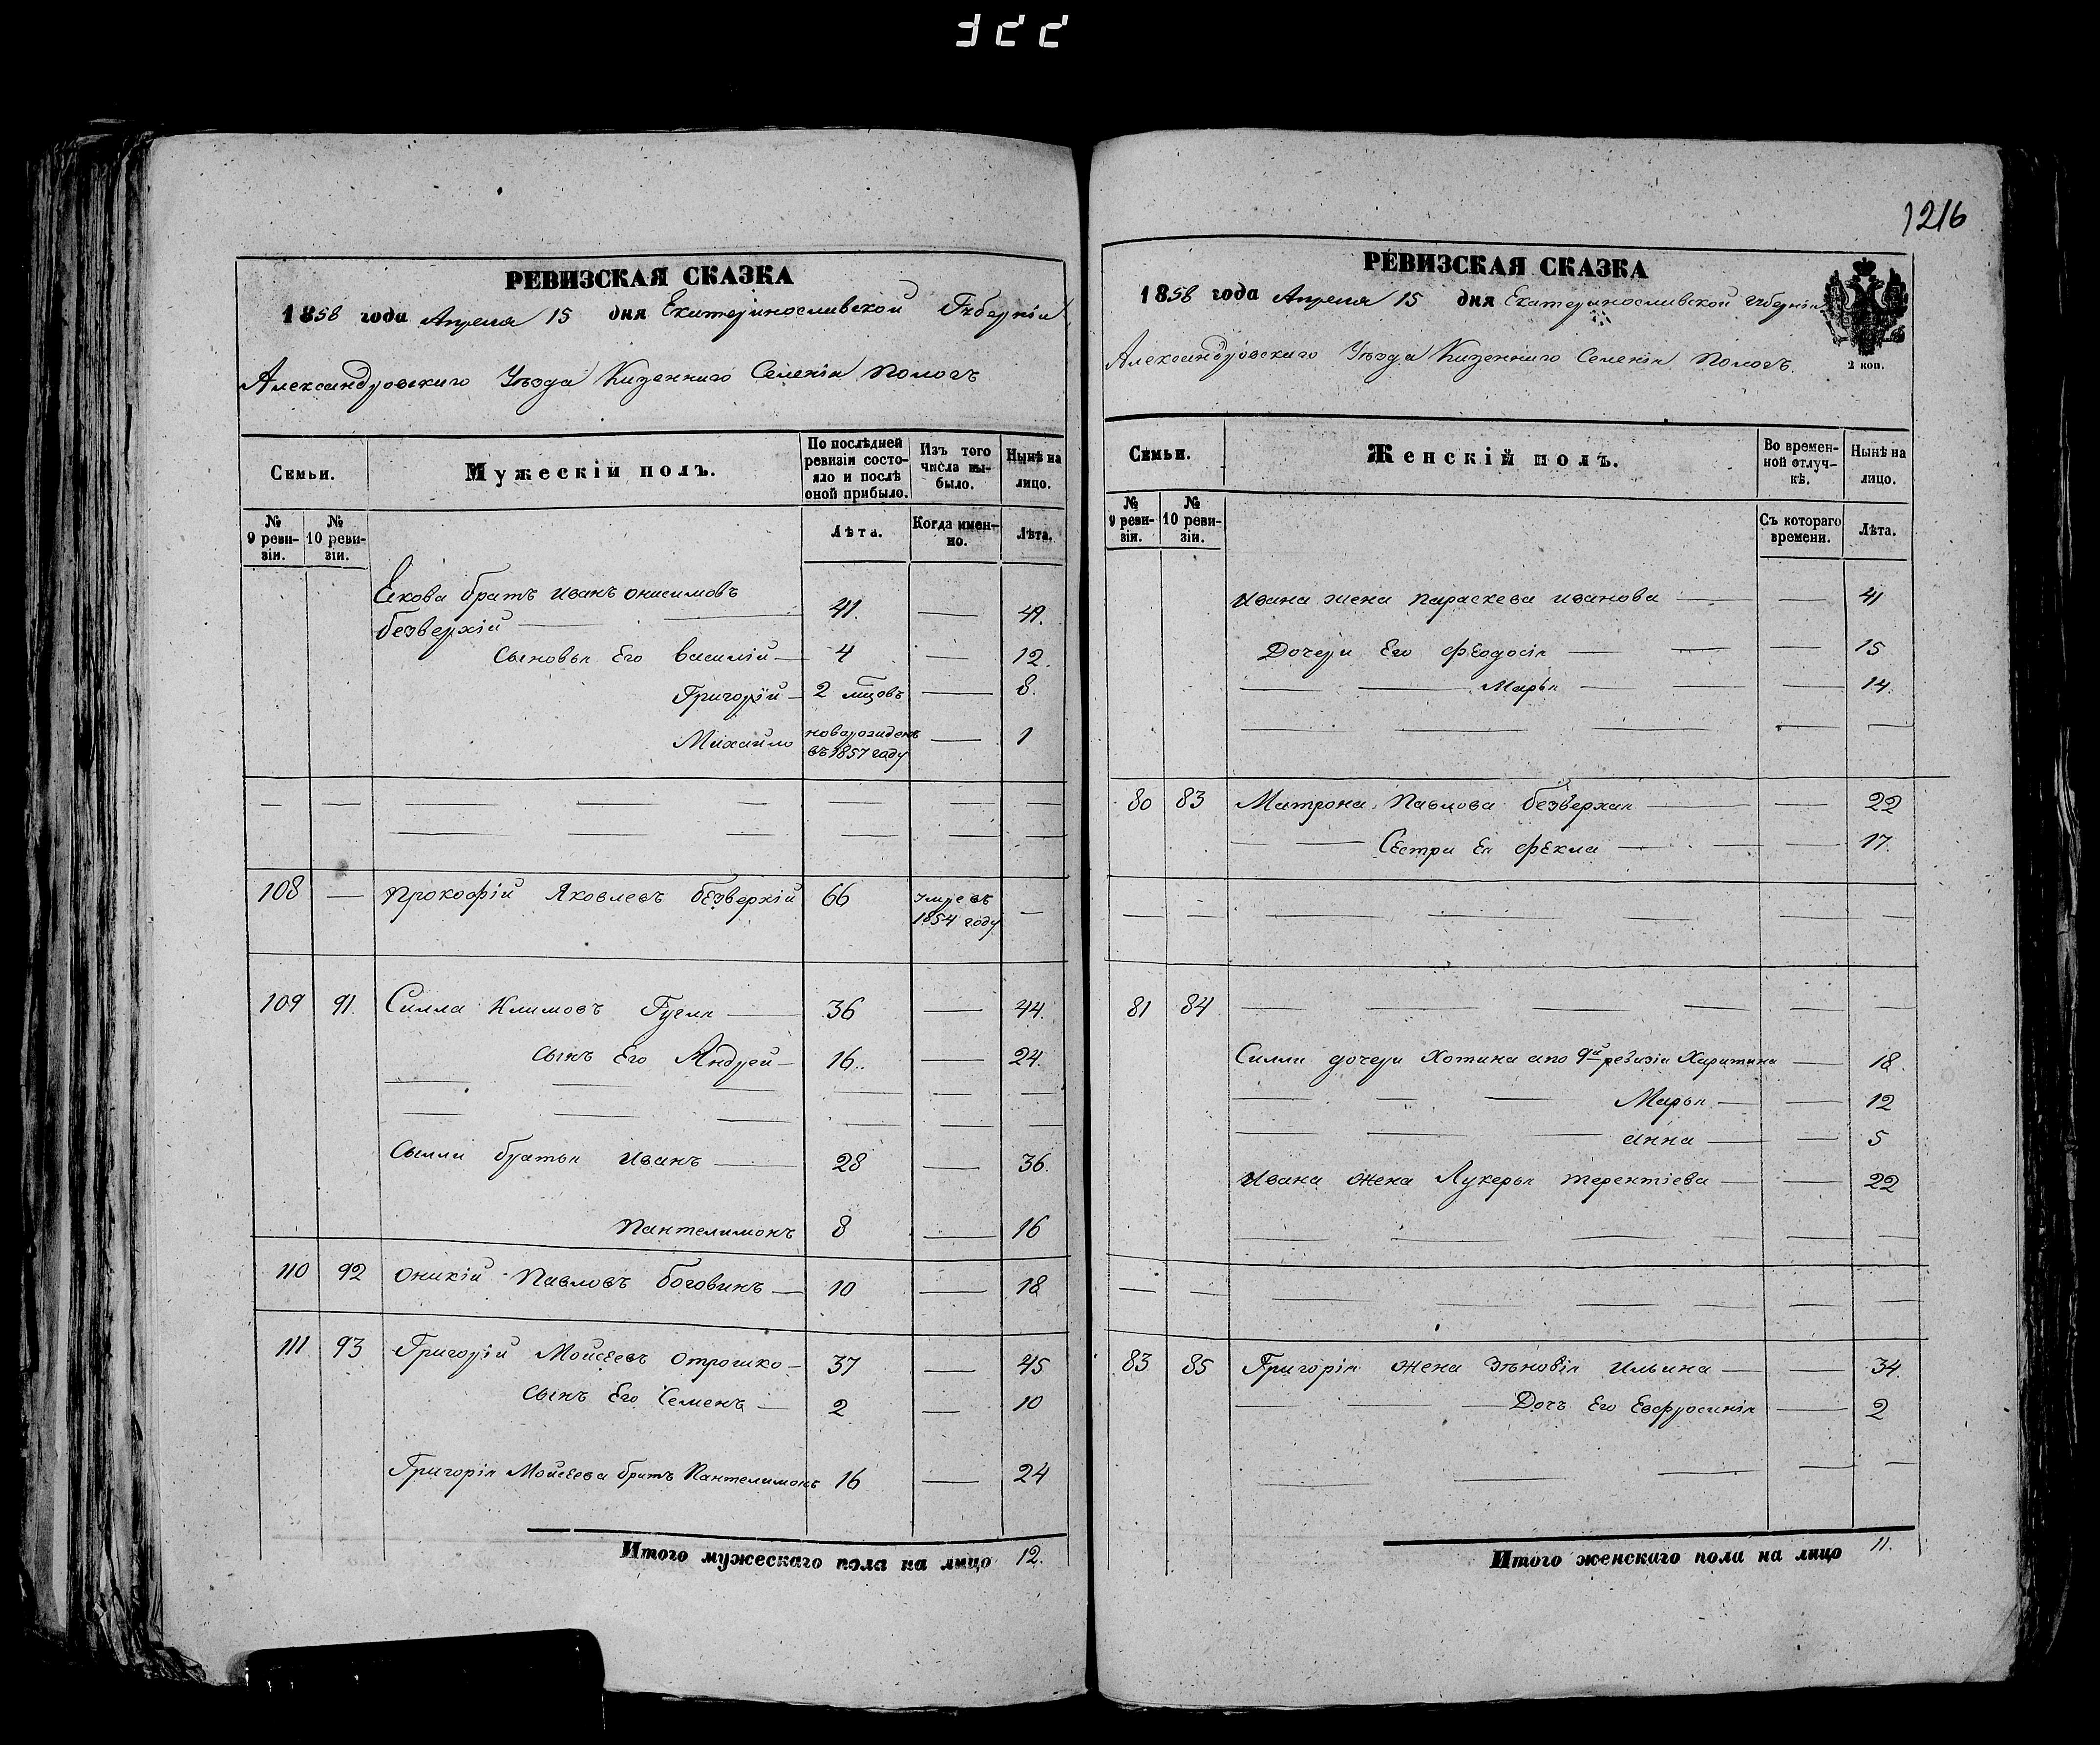 322
РЕВИЗСКАЯ СКАЗКА
1858 года Апреля 15 дня Екатеринославской Губерніи
Александровскаго Уѣзда Казеннаго Селенія Пологъ
Семьи.
Мужескій полъ.
По послѣдней ревизіи состояло и послѣ оной прибыло.
Изъ того числа выбыло.
Нынѣ на лицо.
№ 9 ревизіи.
№ 10 ревизіи.
Лѣта.
Когда именно.
Лѣта.
брать Иванъ Онисимовъ
безверхій — 41. — 49.
Сыновья Его Василій — 4 — 12.
Григорій — 2 — 8.
Михайло новорожденъ въ 1857 году — 1
108 — Прокофій Яковлевъ безверхій 66 умре въ 1854 году —
109 91. Силла Климовъ — 36 — 44.
сынъ Его Андрей — 16. — 24.
Силли братья Иванъ — 28 — 36.
Пантелимонъ 8 — 16
110 92 Оникій Павловъ боговинъ — 10 — 18
111 93 Григорій Моисеевъ Отрошко — 37 — 45
сынъ Его Семенъ — 2 — 10
Григорія Моисеева братъ Пантелимонъ 16 — 24
Итого мужескаго пола на лицо 12.
1216
РЕВИЗСКАЯ СКАЗКА
1858 года Апреля 15 дня Екатеринославской Губерніи
Александровскаго Уѣзда Казеннаго Селенія Пологъ.
2 коп.
Семьи.
Женскій полъ.
Во временной отлучкѣ.
Нынѣ на лицо.
№ 9 ревизіи.
№ 10 ревизіи.
Съ котораго времени.
Лѣта.
Ивана жена Параскева Иванова — — 41
Дочери Его Феодосія — — — 15
— — Марья — — — 14.
80 83 Матрона Павлова безверхая — — 22
— — Сестра Ея Фекла — — — 17.
81 84
Силли дочери Хотина а по 9й ревизіи Харитина — 18.
— — — Марья — — 12
— — — Анна — — 5
Ивана жена Лукерья Терентіева — — 22
83 85 Григорія жена Зѣновія Ильина — — 34.
— — — Дочь Его Евфросинія — 2
Итого женскаго пола на лицо 11.